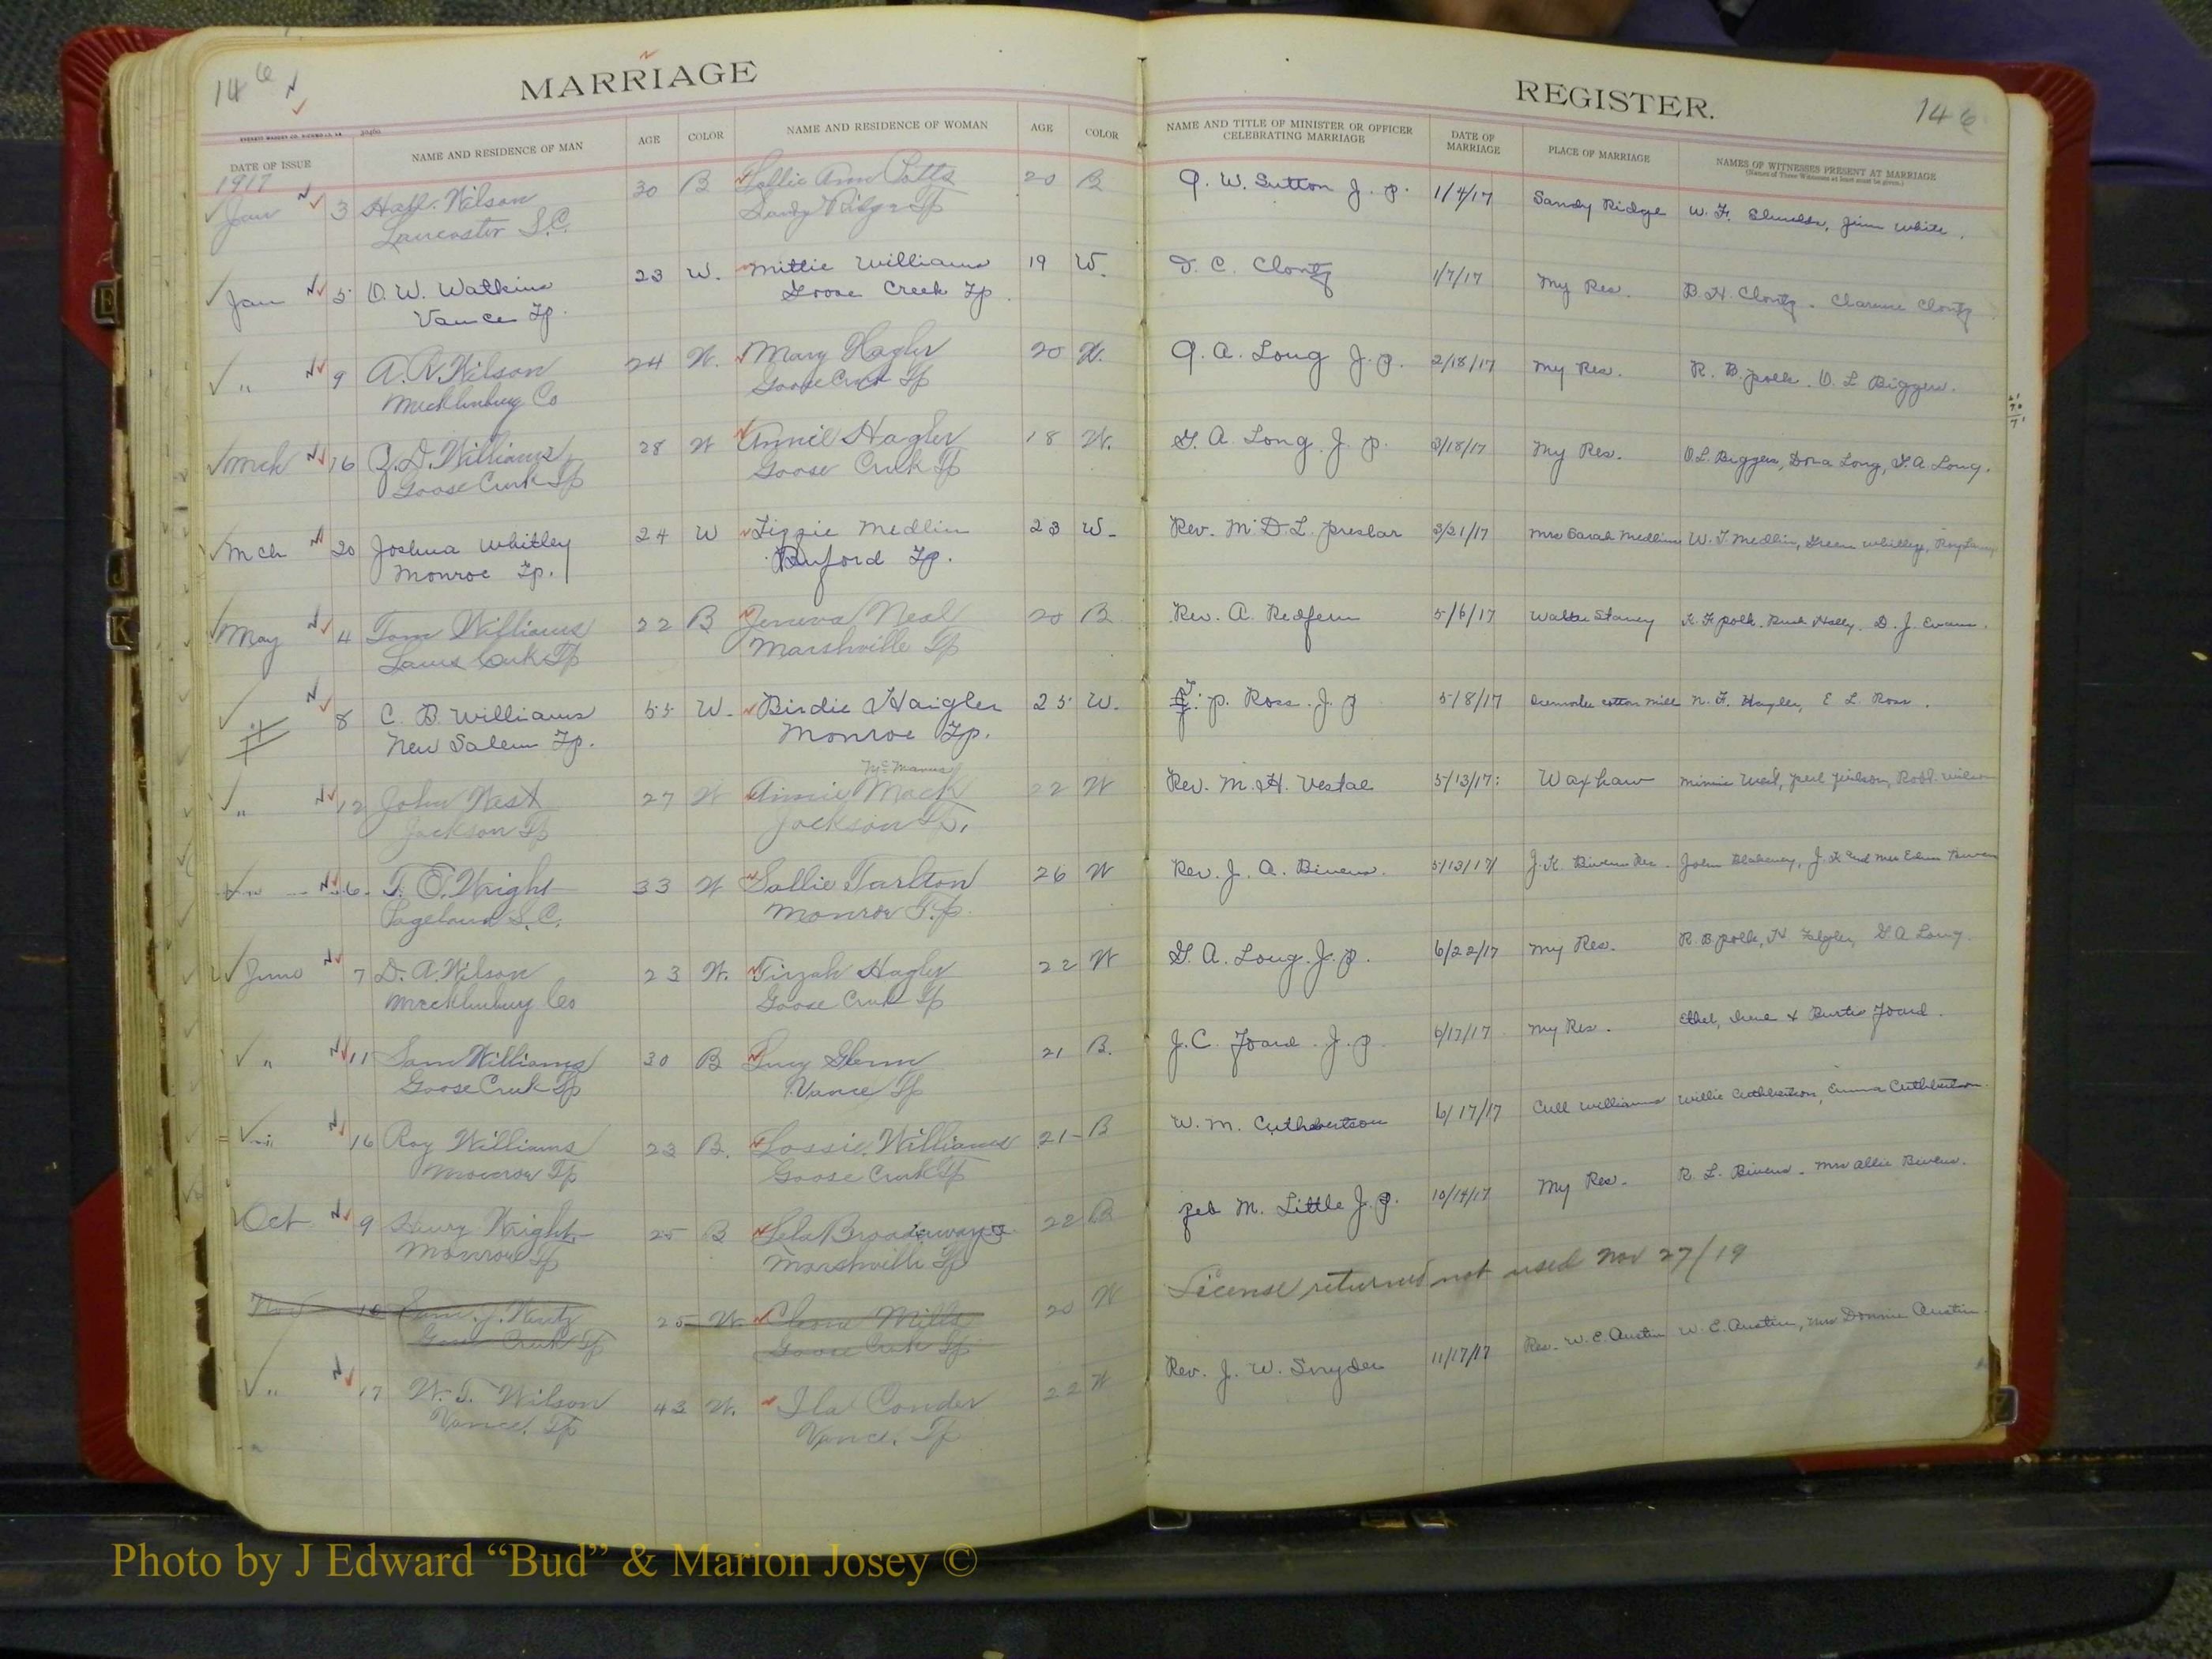 146
MARRIAGE
REGISTER.
146
DATE OF ISSUE
NAME AND RESIDENCE OF MAN
AGE
COLOR
NAME AND RESIDENCE OF WOMAN
AGE
COLOR
NAME AND TITLE OF MINISTER OR OFFICER
CELEBRATING MARRIAGE
DATE OF
MARRIAGE
PLACE OF MARRIAGE
NAMES OF WITNESSES PRESENT AT MARRIAGE
(Names of Three Witnesses at least must be given.)
1917
Jan 3 Wilson 30 B Ann Potts 20 B W. Sutton J. P. 1/4/17 Sandy Ridge W. F. Jim White.
Lancaster S.C. Sandy Ridge Tp
Jan 5 O. W. Watkins 23 W. Mittie Williams 19 W. C. Clontz 1/7/17 My Res. B. H. Clontz. Clarence Clontz
Vance Tp. Goose Creek Tp.
" 9 A. R. Wilson 24 W. Mary Hagler 20 W. A. Long J. P. 2/18/17 My Res. R. B. Polk. O. L. Biggers.
Mecklenburg Co Goose Creek Tp
Mch 16 D. Williams 28 W Annie Hagler 18 W. G. A. Long J. P. 3/18/17 My Res. O. L. Biggers, Dora Long, G. A. Long.
Goose Creek Tp Goose Creek Tp
Mch 20 Joshua Whitley 24 W Lizzie Medlin 23 W. Rev. M. D. L. Preslar 3/21/17 Mrs Sarah Medlins W. T. Medlin, Green Whitley,
Monroe Tp. Buford Tp.
May 4 Tom Williams 22 B Jeneva Neal 20 B Rev. A. Redfern 5/6/17 Walter Staney Polk. D. J. Evans.
Lanes Creek Tp Marshville Tp
" 8 C. B. Williams 55 W. Birdie Haigler 25 W. P. Ross. J. P 5/8/17 cotton mill N. F. Hagler, E. L. Ross.
New Salem Tp. Monroe Tp.
McManus
" 12 John West 27 W Annie Mack 22 W Rev. M. H. Vestal 5/13/17 Waxhaw Minnie West, Wilson
Jackson Tp Jackson Tp.
" T. O. Wright 33 W Sallie Tarlton 26 W Rev. J. A. Bivens. 5/13/17 J. K. Bivens Res. John Blakeney, J. K and Mrs
Pageland S.C. Monroe T.p.
June 7 D. A. Wilson 23 W. Tirzah Hagler 22 W G. A. Long. J. P. 6/22/17 My Res. R. B. Polk, G A Long.
Mecklenburg Co Goose Creek Tp
" 11 Sam Williams 30 B Lucy Glenn 21 B. J. C. Foard. J. P 6/17/17 My Res. Ethel, & Foard.
Goose Creek Tp Vance Tp
" 16 Roy Williams 23 B. Lossie Williams 21 B W. M. Cuthbertson 6/17/17 Cull Williams Willie Cuthbertson, Emma Cuthbertson.
Monroe Tp Goose Creek Tp
Oct 9 Henry Wright 25 B Lela Broadaway 22 B Zeb M. Little J. P. 10/14/17 My Res. R. L. Bivens. Mrs Allie Bivens.
Monroe Tp Marshville Tp
Nov 25 W. Mills 20 W License returned not used Nov 27/19
Goose Creek Tp Goose Creek Tp
" 17 W. T. Wilson 43 W. Ila Conder 22 W Rev. J. W. Snyder 11/17/17 Res. W. E. Austin W. E. Austin, Mrs Donnie Austin.
Vance, Tp Vance, Tp
E
J
K
Photo by J Edward “Bud” & Marion Josey ©